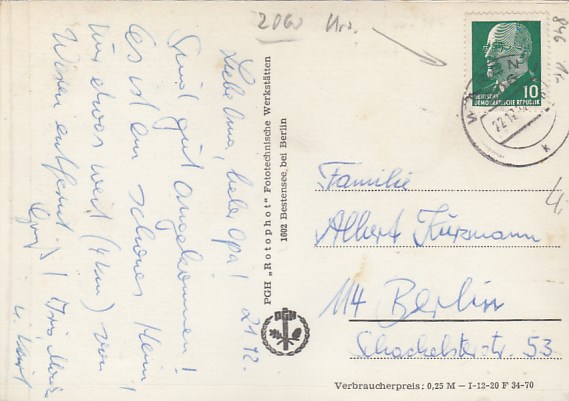 2060 Urs.
846 1r.
Liebe Oma, liebe Opa!
21.12.
Sind gut angekommen!
Es ist ein schönes Heim,
nur etwas weit (4 km) von
Wesen entfernt!
Gruß
u.
PGH „Rotophot" Fototechnische Werkstätten
1602 Bestensee, bei Berlin
PGH
10
DEUTSCHE
DEMOKRATISCHE REPUBLIK
22.12.
k
Familie
Albert Kurzmann
114 Berlin
Schachelster-str. 53
Verbraucherpreis: 0,25 M – I-12-20 F 34-70